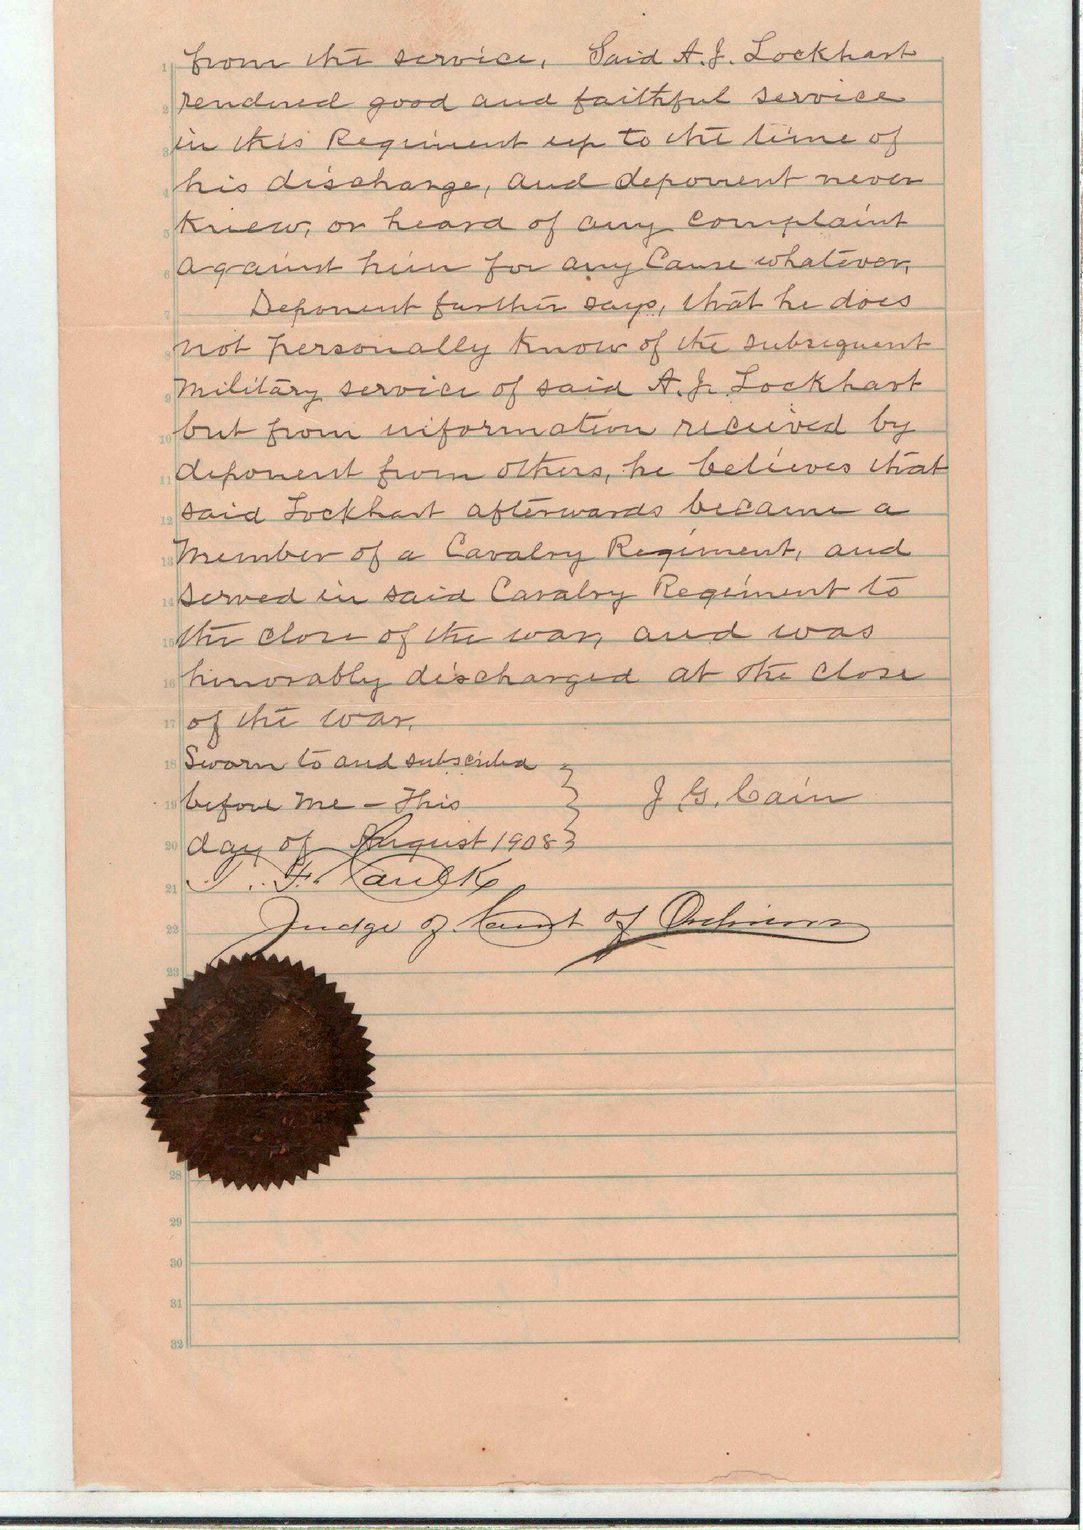 from the service, Said A.J. Lockhart
1
rendered good and faithful service
2
in this Regiment up to the time of
3
his discharge, and deponent never
4
knew, or heard of any complaint
5
against him for any Cause whatever,
6
Deponent further says, that he does
7
not personally know of the subsequent
8
Military service of said A.J. Lockhart
9
but from information received by
10
deponent from others, he believes that
11
said Lockhart afterwards became a
12
Member of a Cavalry Regiment, and
13
served in said Cavalry Regiment to
14
the close of the war, and was
15
honorably discharged at the close
16
of the war.
17
Sworn to and subscribed
18
before me – This
J. G. Cain
19
day of August 1908
20
F.
21
Judge of Court of Ordinary
22
23
28
29
30
31
32